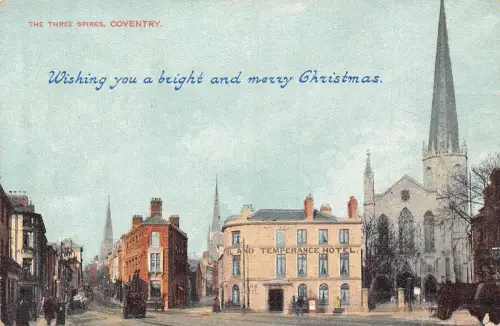 THE THREE SPIRES, COVENTRY.
Wishing you a bright and merry Christmas.
LAND TEMPERANCE HOTEL